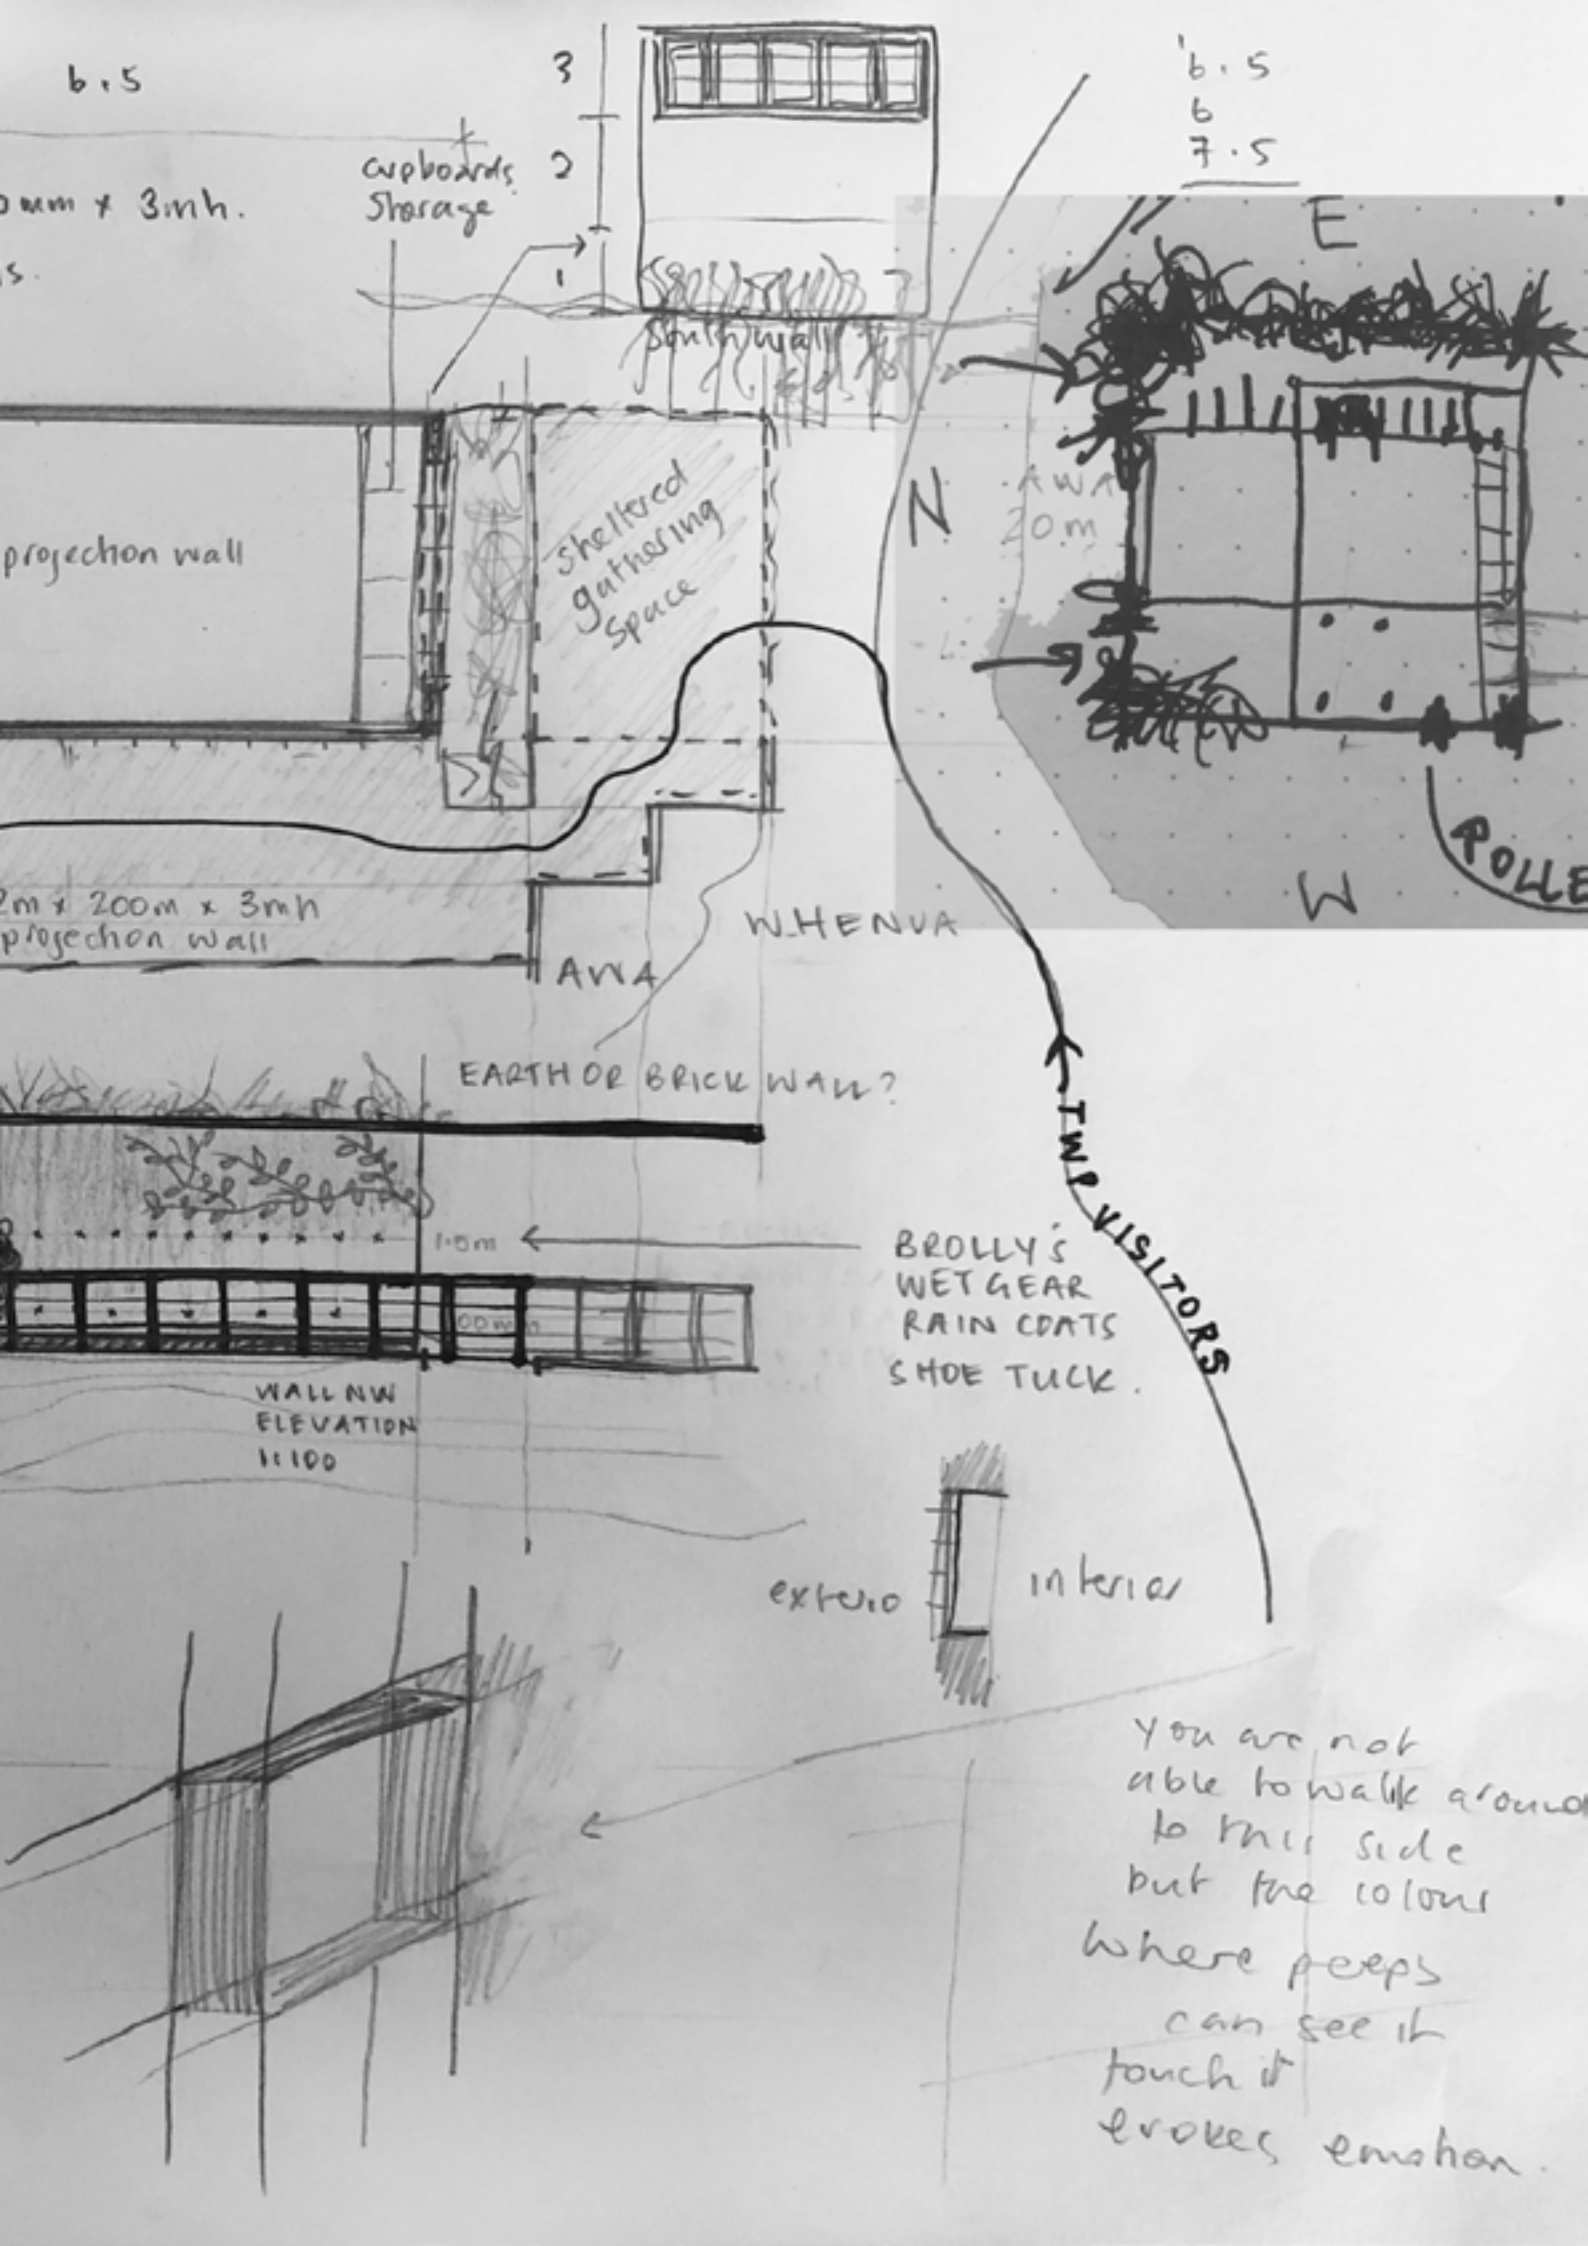 6.5
3
2
1
6.5
6
7.5
cupboards
Storage
mm x 3mh.
South wall
E
N
AWA
20m
W
projection wall
sheltered
gathering
space
2m x 200m x 3mh
projection wall
WHENUA
AWA
EARTH OR BRICK WALL?
ROLLE
TWP VISITORS
1.5m
BROLLY'S
WET GEAR
RAIN COATS
SHOE TUCK.
WALL NW
ELEVATION
1:100
exterio
interior
you are not
able to walk around
to this side
but the colour
where peeps
can see it
touch it
evokes emotion.